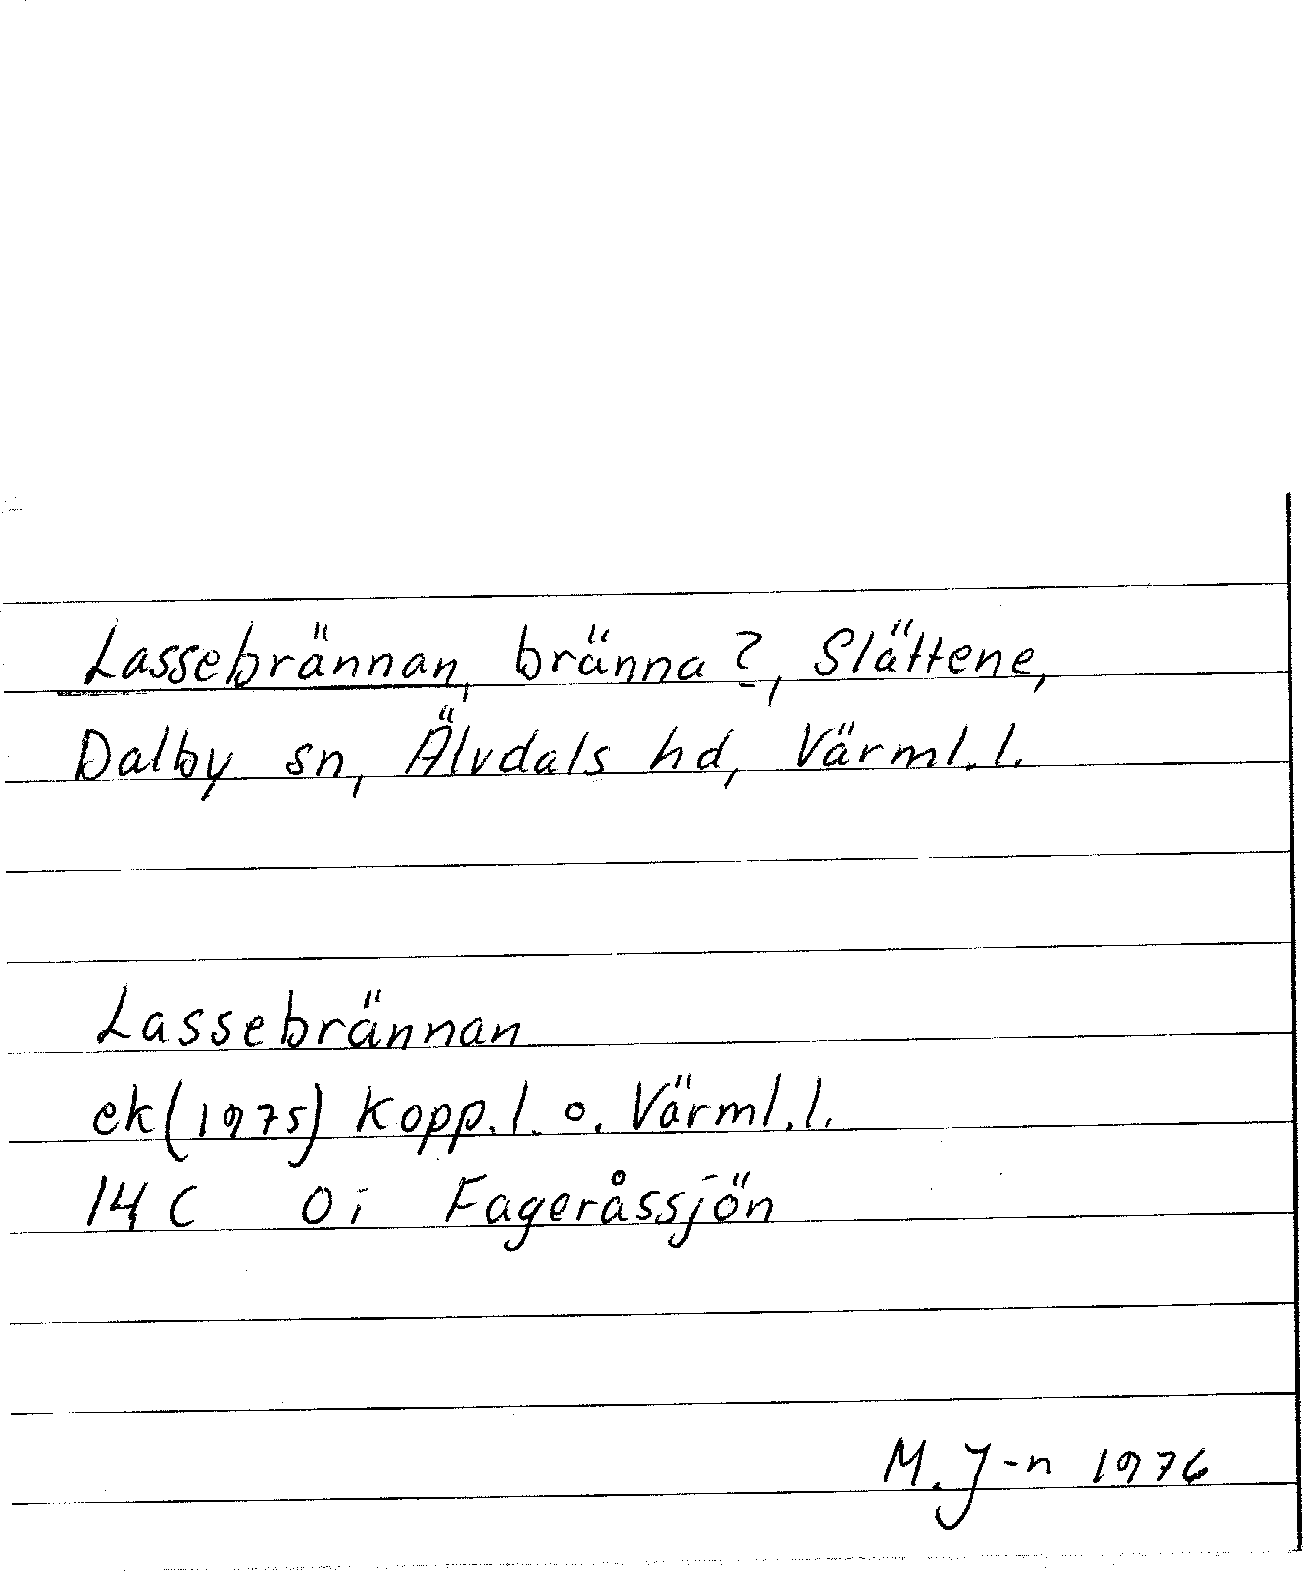 Lassebrännan, bränna?, Slättene,
Dalby sn, Älvdals hd, Värml. l.
Lassebrännan
ek(1975) Kopp. l. o. Värml. l.
14 C 0i Fageråssjön
M. J-n 1976